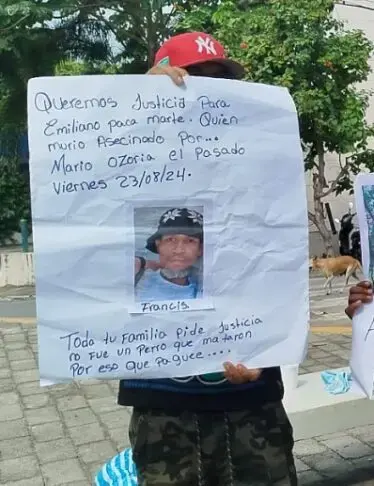 NY
Queremos Justicia Para
Emiliano paca marte. Quien
murio Asecinado Por...
Mario Ozoria el Pasado
Viernes 23/08/24.
Francis
Toda tu Familia Pide Justicia
no Fue un Perro que mataron
Por eso que Paguee....